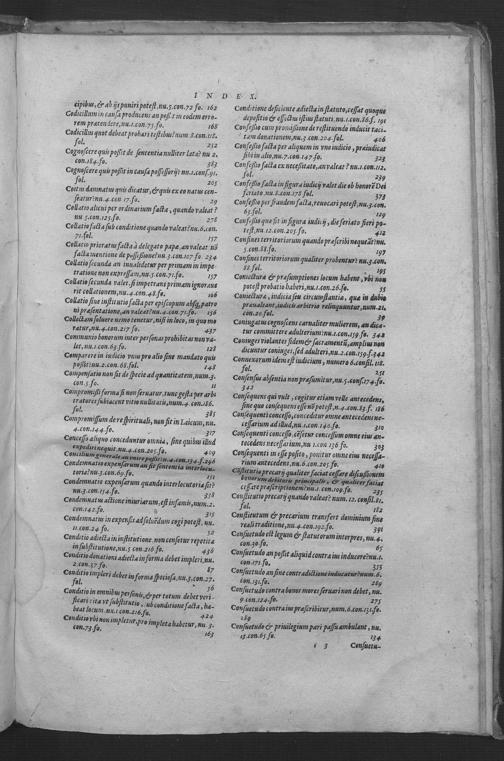 INDEX.
cipibus, & ab ijs puniri potest, nu.3.con.72 fo. 162
Codicillum in causa producens an possit in eodem erro-
rem prætendere, nu.1.con.75.fo. 168
Codicillus quot debeat probari testibus? num 8.con.118.
fol. 232
Cognoscere quis possit de sententia nulliter lata? nu 2.
con.184.fo. 383
Cognoscere quis possit in causa possessorij? nu.1.conf.91.
fol. 205
Coitus damnatus quis dicatur, & quis ex eo natus cen-
seatur? nu.4.con 17.fo. 29
Collatio alicui per ordinarium facta, quando valeat?
nu 5.con.123.fo. 276
Collatio facta sub conditione quando valeat? nu.6.con.
71.fol. 157
Collatio prioratus facta à delegato papæ, an valeat nō
facta mentione de possessione? nu.3.con.107 fo 234
Collatio secunda an inualidetur per primam in impe-
tratione non expressam, nu.5.con.71.fo. 157
Collatio secunda valet, si impetrans primam ignoraue
rit collationem, nu.4.con.48.fo. 106
Collatio sine institutio facta per episcopum absq; patro
ni præsentatione, an valeat? nu.4.con.71.fo. 156
Collectam soluere nemo tenetur, nisi in loco, in quo mo
ratur, nu.4.con.217 fo. 437
Communio bonorum inter personas prohibitas nun va-
let, nu.1.con.63.fo. 128
Comparere in iudicio vnus pro alio sine mandato quis
possit? nu.2.con.68.fol. 148
Compensatio non fit de specie ad quantitatem, num 3.
con 5.fo. 11
Compromissi forma si non seruatur, tunc gesta per arbi
tratores subiacent vitio nullitatis, num.4.con.186.
fol. 385
Compromissum de re spirituali, non fit in Laicum, nu.
4.con.144.fo. 317
Concesso aliquo conceduntur omnia, sine quibus illud
expediri nequit.nu.4.con.205.fo. 409
Concilium generale an inter possit, nu.4.con.134.f.296
Condemnatio expensarum an sit sententia interlocu-
toria? nu.5.con.69.fo. 151
Condemnatio expensarum quando interlocutoria sit?
nu.3.con.154.fo. 338
Condemnatus actione iniuriarum, est infamis, num.2.
con.142.fo. 315
Condemnatus in expensis ad soluēdum cogi potest, nu.
11.con.24.fo. 52
Conditio adiecta in institutione non censetur repetita
in substitutione, nu.5 con.216 fo. 436
Conditio donationi adiecta in forma debet impleri, nu.
2.con.37.fo. 87
Conditio impleri debet in forma specifica, nu.3.con.27.
fol. 56
Conditio in omnibus personis, & per totum debet veri-
ficari: ita vt substitutio, sub conditione facta, ha-
beat locum.nu.1.con.216.fo. 424
Conditio vbi non impletur, pro impleta habetur, nu.3.
con.73.fo. 163
Conditione deficiente adiecta in statuto, cessat quoque
depositio & effectus istius statuti.nu.1.con.86.f. 191
Confessio cum promissione de restituendo inducit taci-
tam donationem, nu.3 con.204.fol. 406
Confessio facta per aliquem in vno iudicio, præiudicat
sibi in alio, nu.7.con.147 fo. 323
Confessio facta ex necessitate, an valeat? nu.1.con.112.
fol. 239
Confessio facta in figura iudicij valet die ob honorē Dei
feriato, nu.8.con.178 fol. 373
Confessio per fraudem facta, reuocari potest, nu.3.con.
65.fol. 129
Confessio quæ fit in figura iudicij, die feriato fieri po-
test, nu.12.con.205.fo. 412
Confines territoriorum quando præscribi nequeāt? nu.
3.con.88.fo. 197
Confines territoriorum qualiter probentur? nu.3.con.
88.fol. 195
Coniectura & præsumptiones locum habent, vbi non
potest probatio haberi, nu.1.con.26.fo. 55
Coniectura, indicia seu circumstantia, quæ in dubio
præualeant, iudicis arbitrio relinquuntur, num.21.
con.20.fol. 39
Coniugatus cognoscens carnaliter mulierem, an dica-
tur committere adulterium? nu.1.con.159 fo. 342
Coniuges violantes fidem & sacramentū, amplius non
dicuntur coniuges, sed adulteri, nu.2.con.159.f.342
Connexorum idem est iudicium, numero 6.consil.118.
fol. 251
Consensus absentia non præsumitur, nu.5.conf.174.fo.
342
Consequens qui vult, cogitur etiam velle antecedens,
sine quo consequens esse nō potest, n.4.con.83.f. 186
Consequenti concesso, conceditur omne antecedens ne-
cessarium ad illud, nu.1.con.140.fo. 310
Consequenti concesso, cēsetur concessum omne eius an-
tecedens necessarium, nu 1.con 136 fo. 303
Consequentis in esse posito, ponitur omne eius necessa-
rium antecedens, nu.6.con.205.fo. 410
Constitutio precarij qualiter faciat cessare discussionem
bonorum debitoris principalis, & qualiter faciat
cessare præscriptionem? nu.1.con.109.fo. 235
Constitutio precarij quando valeat? num.12.consil.81.
fol. 182
Constitutum & precarium transfert dominium sine
reali traditione, nu.4.con.192.fo. 391
Consuetudo est legum & statutorum interpres, nu.4.
con.30.fo. 65
Consuetudo an possit aliquid contra ius inducere? nu.1.
con.171.fo. 355
Consuetudo an sine contradictione inducatur? nu.6.
con.131.fo. 289
Consuetudo contra bonos mores seruari non debet, nu.
9.con.124.fo. 275
Consuetudo contra ius præscribitur, num.6.con.131.fo.
289
Consuetudo & priuilegium pari passu ambulant, nu.
15.con.65.fo. 134
i 3 Consuetu-